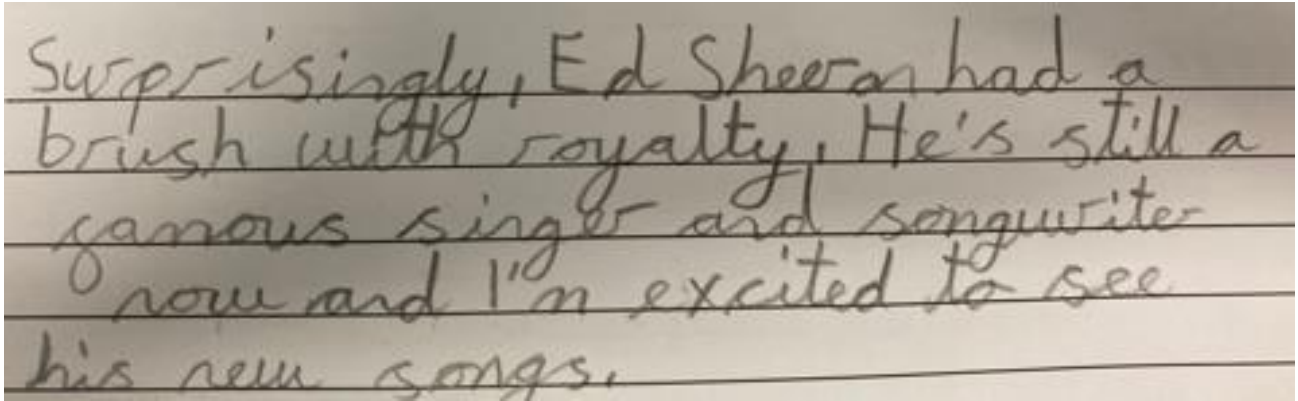 Surprisingly, Ed Sheeran had a
brush with royalty. He's still a
famous singer and songwriter
now and I'm excited to see
his new songs.